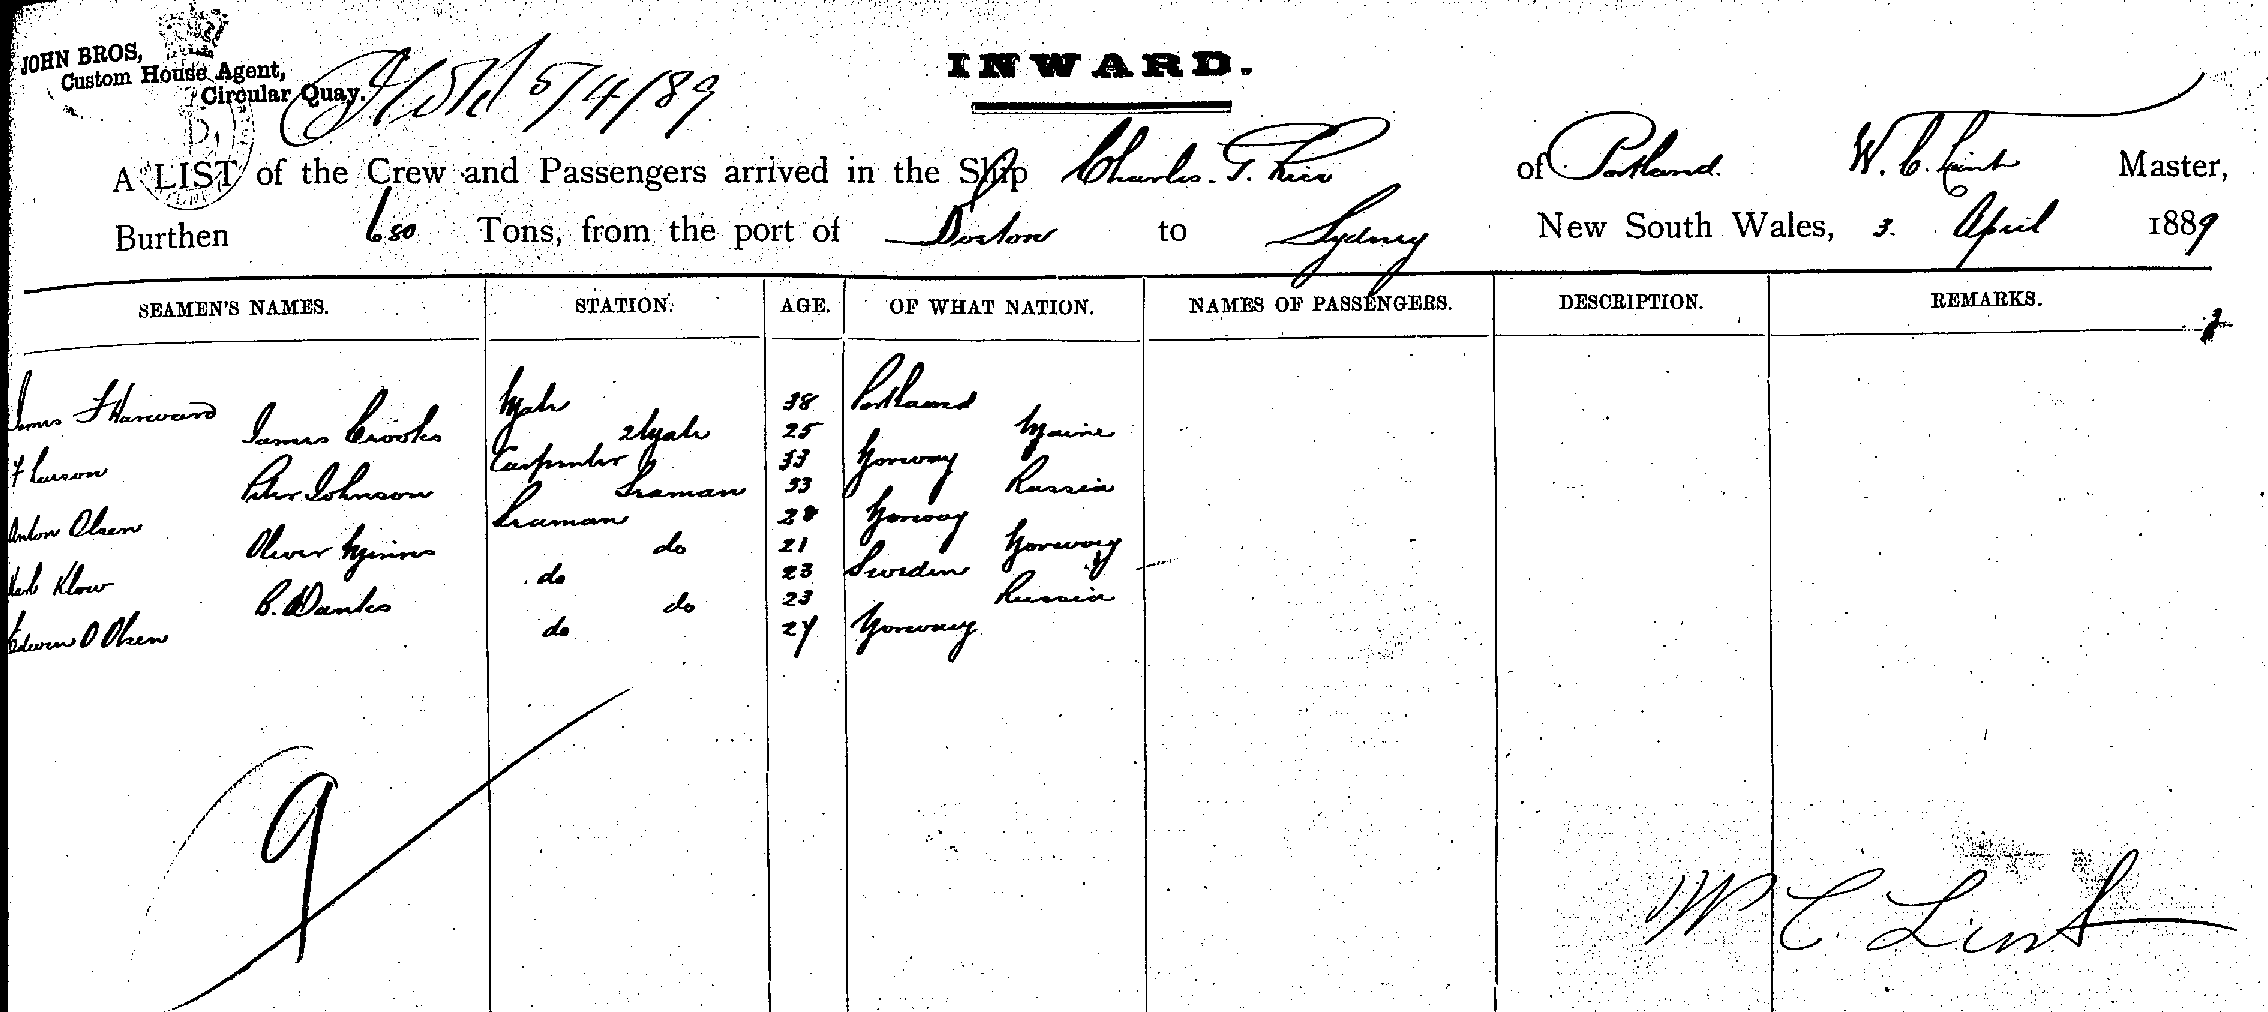 JOHN BROS,
Custom House Agent,
Circular Quay.
5/4/89
INWARD.
A LIST of the Crew and Passengers arrived in the Ship Charles. of Portland. W. C. Lint Master,
Burthen 650 Tons, from the port of Boston to Sydney New South Wales, 3. April 1889
SEAMEN'S NAMES. STATION. AGE. OF WHAT NATION. NAMES OF PASSENGERS. DESCRIPTION. REMARKS.
James F Harward Mate 38 Portland
James Crooks 2 Mate 25 Maine
F Larson Carpenter 33 Norway
Peter Johnson Seaman 33 Russia
Anton Olsen Seaman 28 Norway
Oliver do 21 Norway
Klow do 23 Sweden
B. Danks do 23 Russia
Edwin O Olsen do 24 Norway
9
W C Lint